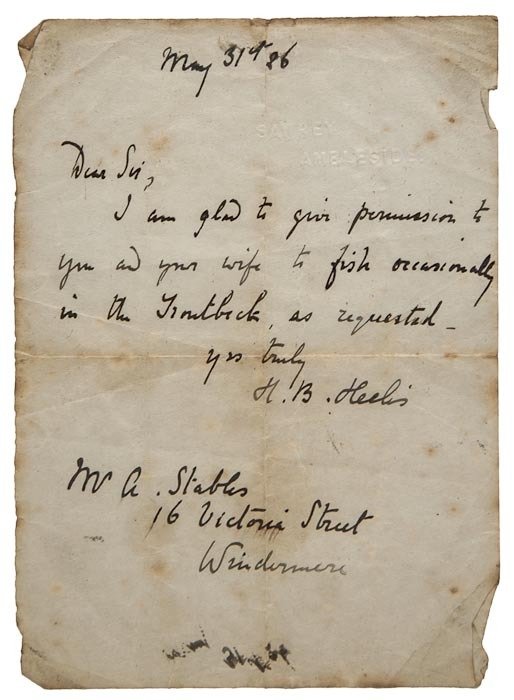 May 31st 26
SAWREY
AMBLESIDE
Dear Sir,
I am glad to give permission to
you and your wife to fish occasionally
in the Troutbeck, as requested_
yrs truly
H. B. Heelis
Mr A. Stables
16 Victoria Street
Windermere